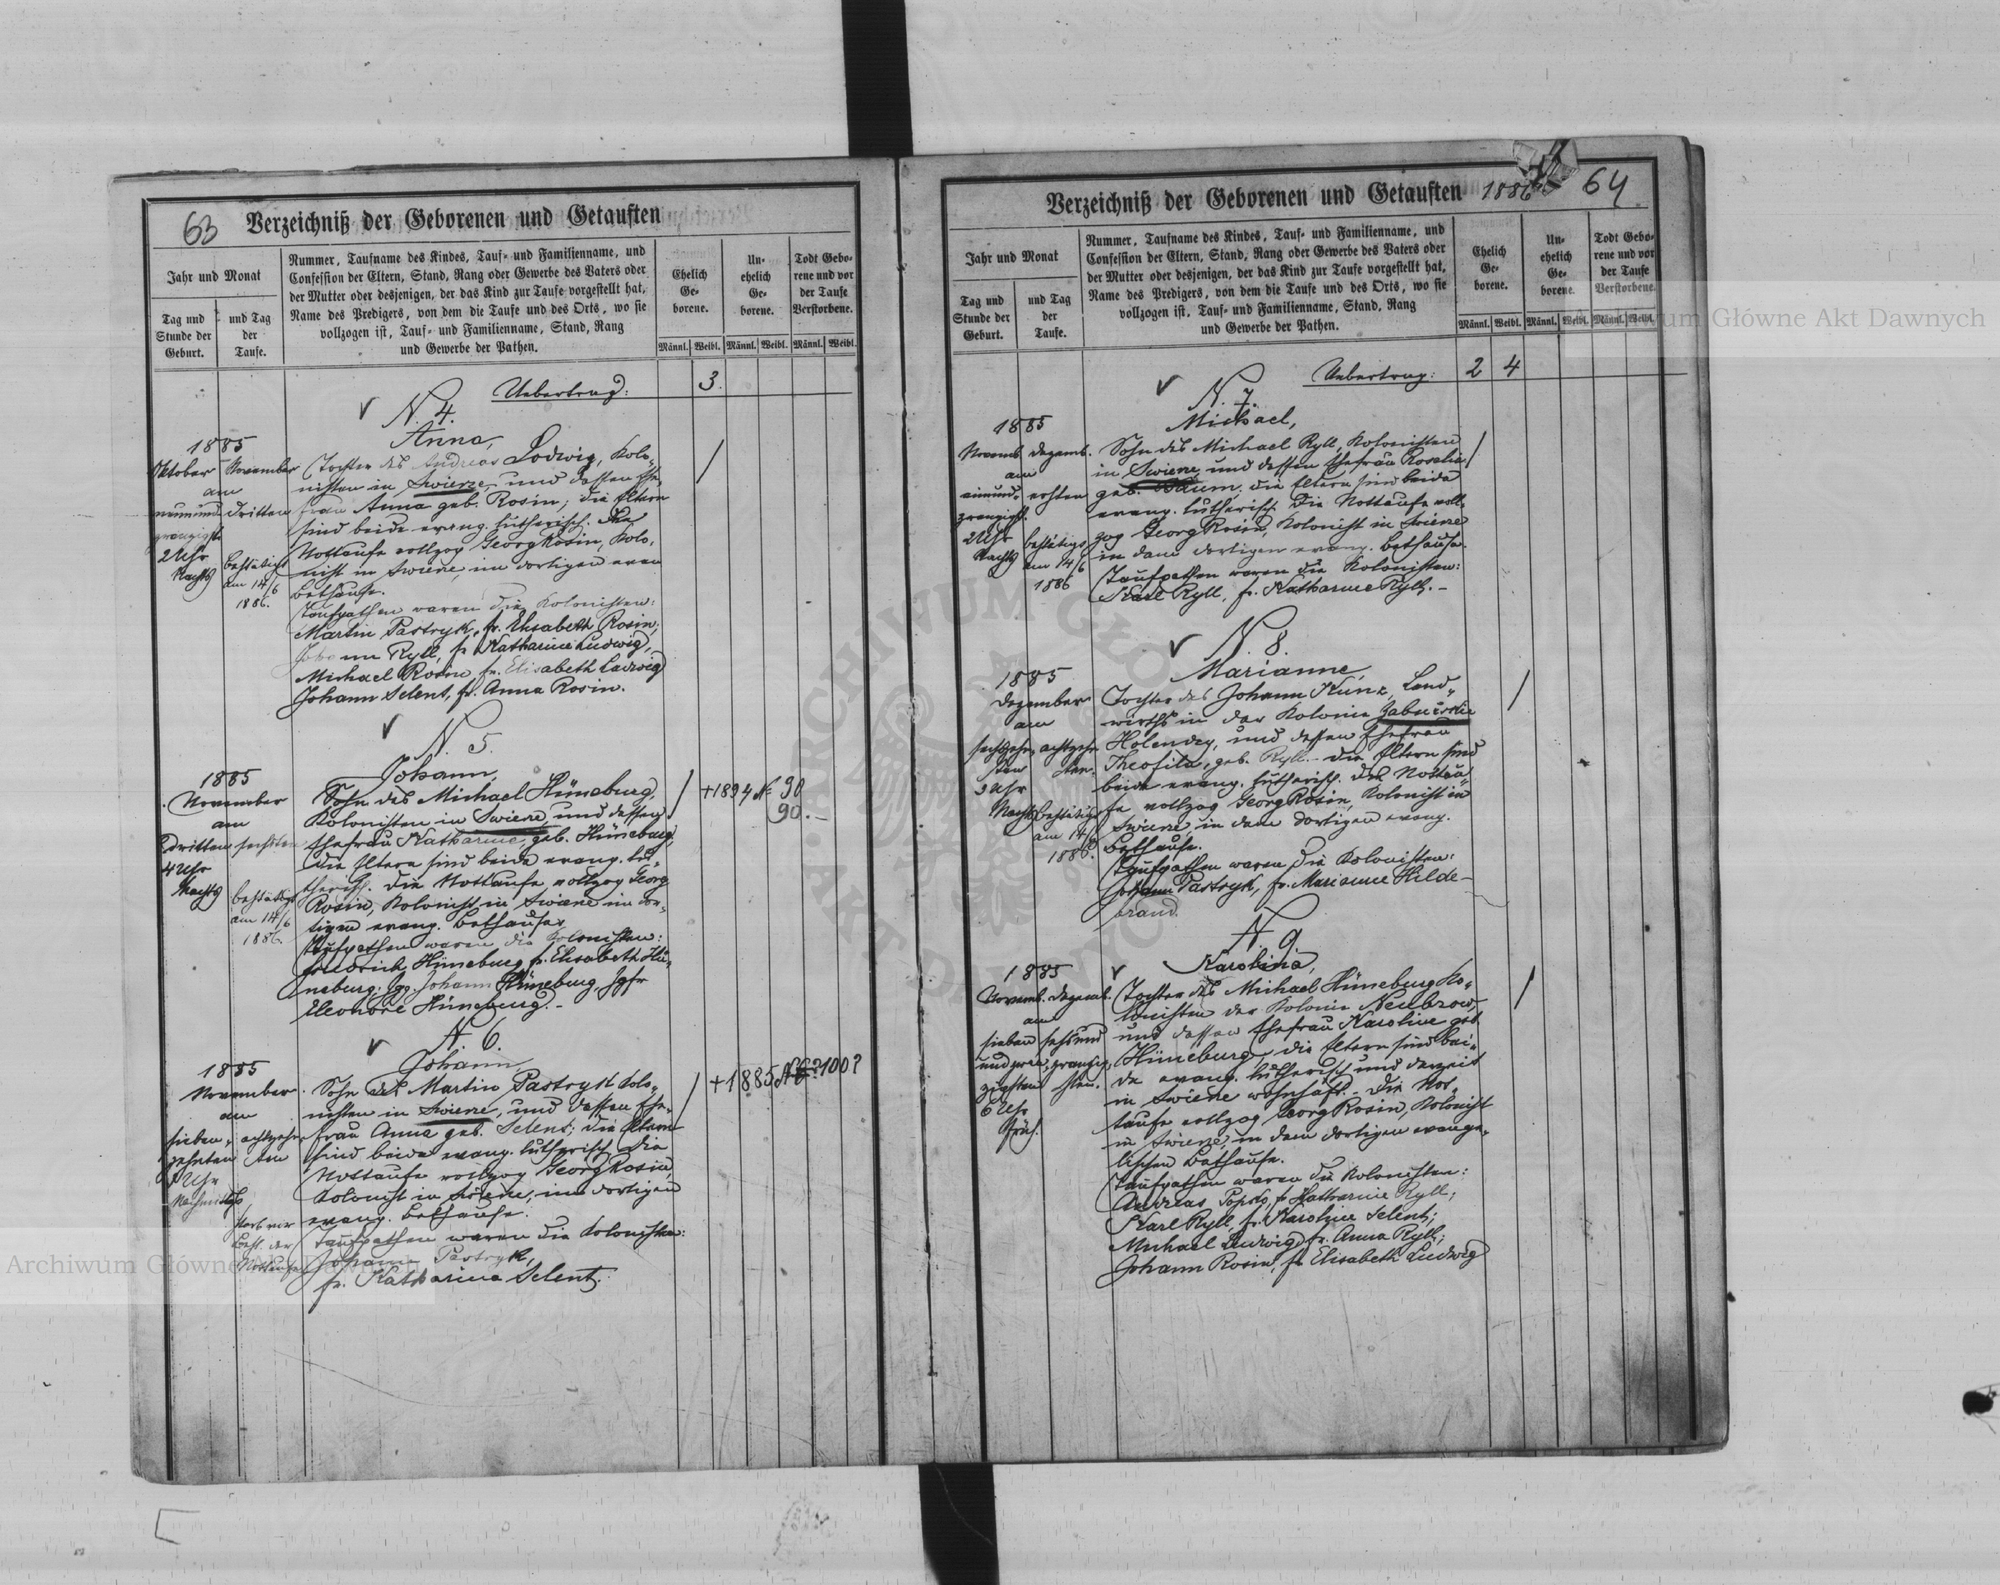 63 Verzeichniß der Geborenen und Getauften
Jahr und Monat
Tag und
Stunde der
Geburt.
und Tag
der
Taufe.
Nummer, Taufname des Kindes, Tauf- und Familienname, und
Confession der Eltern, Stand, Rang oder Gewerbe des Vaters oder
der Mutter oder desjenigen, der das Kind zur Taufe vorgestellt hat,
Name des Predigers, von dem die Taufe und des Orts, wo sie
vollzogen ist, Tauf- und Familienname, Stand, Rang
und Gewerbe der Pathen.
Ehelich
Ge-
borene.
Un-
ehelich
Ge-
borene.
Todt Gebo-
rene und vor
der Taufe
Verstorbene.
Männl. Weibl. Männl. Weibl. Männl. Weibl.
Uebertrag: 3.
N. 4.
Anna,
1885
Oktober November
am
neunund- dritten
zwanzigst.
2 Uhr
Nachts
bestätigt
am 14/6
1886.
Tochter des Andreas Lodwig, Kolo-
nisten in Swierze und dessen Ehe-
frau Anna geb. Rosin; die Eltern
sind beide evang. lutherisch. Die
Nottaufe vollzog Georg Rosin, Kolo-
nist in Swierze, im dortigen evan
Bethause.
Taufpathen waren die Kolonisten:
Martin Pastryk, fr. Elisabeth Rosin;
Johann Ryll, fr. Katharine Ludwig,
Michael Rosin, fr. Elisabeth Ludwig
Johann Selent, fr. Anna Rosin.
N. 5.
Johann,
1885
November
am
dritten sechsten
4 Uhr
Nachts
bestätigt
am 14/6
1886.
Sohn des Michael Hüneburg
Kolonisten in Swierze und dessen
Ehefrau Katharine, geb. Hüneburg,
die Eltern sind beide evang. lu-
therisch. Die Nottaufe vollzog Georg
Rosin, Kolonist in Swierze im dor-
tigen evang. Bethause.
Taufpathen waren die Kolonisten:
Friedrich Hüneburg, fr. Elisabeth Hü-
neburg; Jg. Johann Hüneburg Jgfr
Eleonore Hüneburg.
+1894 № 90
90.
N. 6.
Johann,
1885
November
am
sieben- achtzehn-
zehnten ten
Uhr
Nachmittags
starb vor
Best. der
Nottaufe
Sohn des Martin Pastryk Kolo-
nisten in Swierze, und dessen Ehe-
frau Anna geb. Selent; die Eltern
sind beide evang. lutherisch. Die
Nottaufe vollzog Georg Rosin,
Kolonist in Swierze, im dortigen
evang. Bethause.
Taufpathen waren die Kolonisten:
Johann Pastryk,
fr. Katharina Selent.
+1885 № 100?
Verzeichniß der Geborenen und Getauften 1886 64
Jahr und Monat
Tag und
Stunde der
Geburt.
und Tag
der
Taufe.
Nummer, Taufname des Kindes, Tauf- und Familienname, und
Confession der Eltern, Stand, Rang oder Gewerbe des Vaters oder
der Mutter oder desjenigen, der das Kind zur Taufe vorgestellt hat,
Name des Predigers, von dem die Taufe und des Orts, wo sie
vollzogen ist, Tauf- und Familienname, Stand, Rang
und Gewerbe der Pathen.
Ehelich
Ge-
borene.
Un-
ehelich
Ge-
borene.
Todt Gebo-
rene und vor
der Taufe
Verstorbene.
Männl. Weibl. Männl. Weibl. Männl. Weibl.
Uebertrag: 2 4
N. 7.
Michael,
1885
Novemb. Dezemb.
am
einund- ersten
zwanzigst.
2 Uhr
Nachts
bestätigt
am 14/6
1886
Sohn des Michael Ryll, Kolonisten
in Swierze und dessen Ehefrau Rosalie
geb. Baum, die Eltern sind beide
evang. lutherisch. Die Nottaufe voll-
zog Georg Rosin, Kolonist in Swierze
in dem dortigen evang. Bethause.
Taufpathen waren die Kolonisten:
Karl Ryll, fr. Katharine Ryll.
N. 8.
Marianne,
1885
Dezember
am
sechzehn- achtzehn-
ten ten.
3 Uhr
Nachts
bestätigt
am 14/6
1886.
Tochter des Johann Kunz, Land-
wirths in der Kolonie Zabuzskie
Holendry, und dessen Ehefrau
Theofila, geb. Ryll. die Eltern sind
beide evang. lutherisch. Die Nottau-
fe vollzog Georg Rosin, Kolonist in
Swierze in dem dortigen evang.
Bethause.
Taufpathen waren die Kolonisten:
Johann Pastryk, fr. Marianne Hilde-
brand.
N. 9.
Karolina,
1885
Novemb. Dezemb.
am
sieben sechsund
undzwan- zwanzig-
zigsten sten.
6 Uhr
früh.
Tochter des Michael Hüneburg Ko-
lonisten der Kolonie Neubrow,
und dessen Ehefrau Karoline geb.
Hüneburg, die Eltern sind bei-
de evang. lutherisch und derzeit
in Swierze wohnhaft. Die Not-
taufe vollzog Georg Rosin, Kolonist
in Swierze, in dem dortigen evange-
lischen Bethause.
Taufpathen waren die Kolonisten:
Andreas Popko, fr. Katharine Ryll;
Karl Ryll, fr. Karoline Selent;
Michael Ludwig, fr. Anna Ryll;
Johann Rosin, fr. Elisabeth Ludwig
Archiwum Główne Akt Dawnych
Archiwum Główne Akt Dawnych